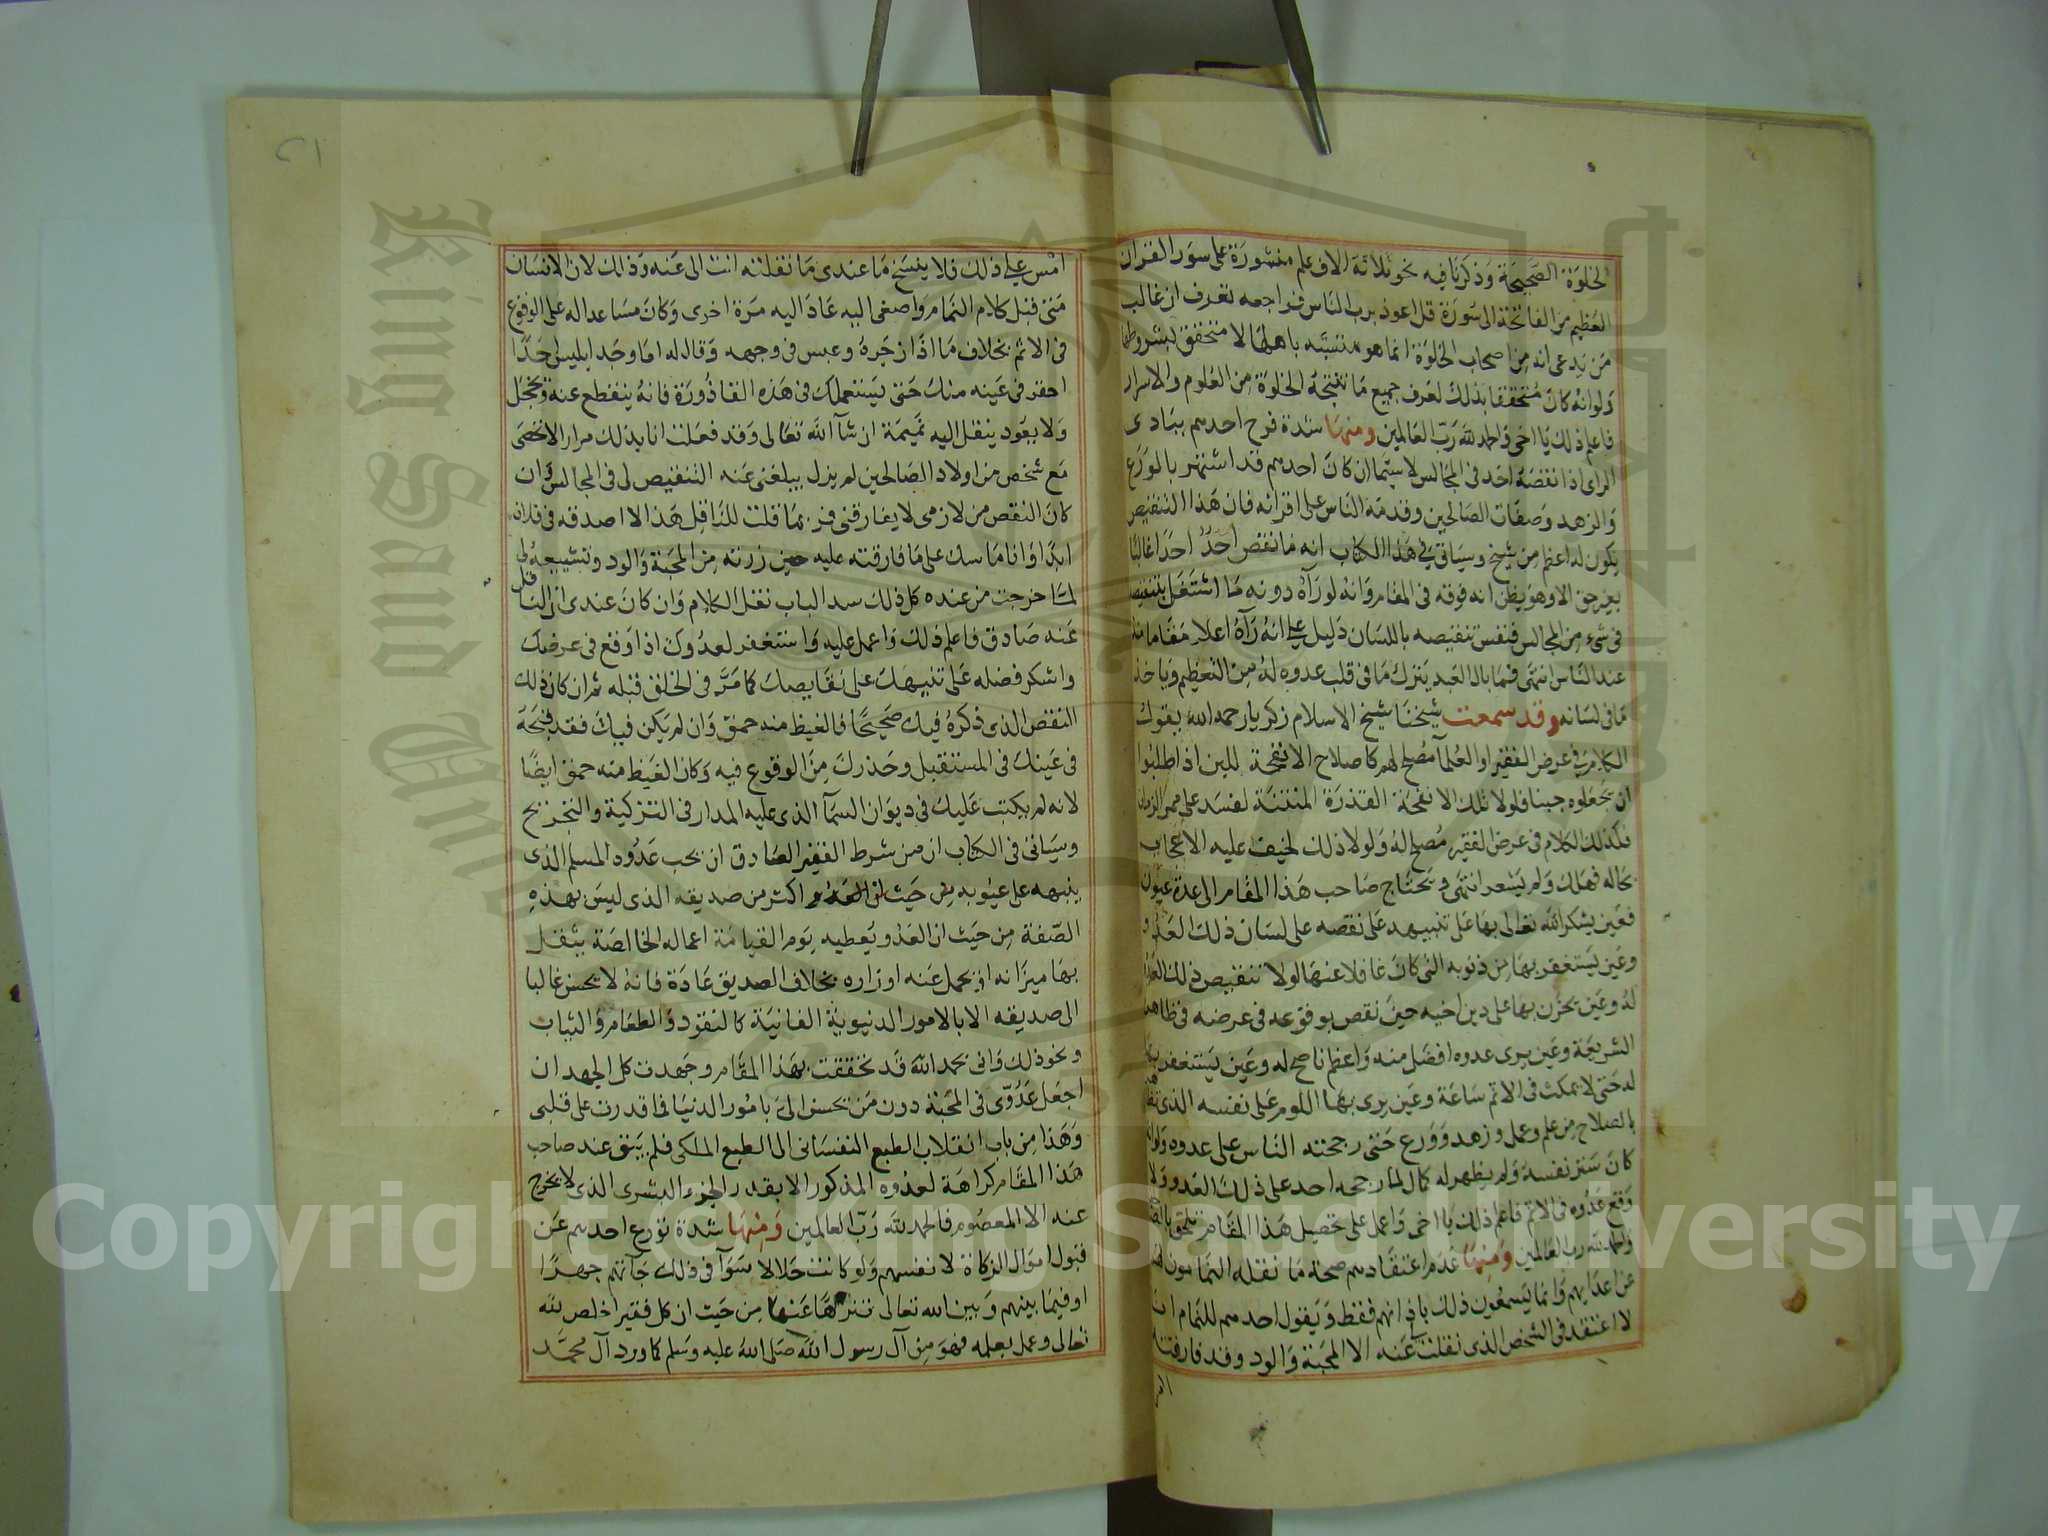 الخلوة الصحيحة وذكرنا فيه نحو ثلاثة الاف علم منشورة على سور القران
العظيم من الفاتحة الى سورة قل اعوذ برب الناس فراجعه تعرف ان غالب
من يدعى انه من اصحاب الخلوة انما هو متشبه باهلها لا متحقق بشروطها
ولو انه كان متحققا بذلك لعرف جميع ما تنتجة الخلوة من العلوم والاسرار
فاعلم ذلك يا اخى والحمد لله رب العالمين ومنها شدة فرح احدهم ببادى
الراى اذا نقصه احد فى المجالس لا سيما ان كان احدهم قد اشتهر بالورع
والزهد وصفات الصالحين وقدمة الناس على اقرانه فان هذا التنقيص
يكون له اعظم من شيخ وسياتى فى هذا الكتاب انه ما نقص احد احدا غالبا
بغير حق الا وهو يظن انه فوقه فى المقام وانه لو رآه دونه ما اشتغل بتنقيصه
فى شىء من المجالس فنفس تنقيصه باللسان دليل على انه رآه اعلا مقاما منه
عند الناس انتهى فما بال العبد يترك ما فى قلب عدوه له من التعظيم وياخذ
ما فى لسانه وقد سمعت شيخنا شيخ الاسلام زكريا رحمه الله يقول
الكلام فى عرض الفقير او العلما مصلح لهم كاصلاح الانفحة للبن اذا طلبوا
ان يجعلوه جبنا فلولا تلك الانفحة القذرة المنتنة لفسد على ممر الزمان
فكذلك الكلام فى عرض الفقير مصلح له ولولا ذلك لخيف عليه الاعجاب
بحاله فهلك ولم يشعر انتهى ويحتاج صاحب هذا المقام الى عدة عيون
فعين يشكر الله تعالى بها على تنبيهه على نقصه على لسان ذلك العدو
وعين يستغفر بها من ذنوبه التى كان غافلا عنها لولا تنقيص ذلك العدو
له وعين يحزن بها على دين اخيه حين نقص بوقوعه فى عرضه فى ظاهر
الشريعة وعين يرى عدوه افضل منه واعظم ناصح له وعين يستغفر بها
له حتى لا يمكث فى الاثم ساعة وعين يرى بها اللوم على نفسه الذى
بالصلاح من علم وعمل وزهد وورع حتى رجحته الناس على عدوه ولو انه
كان ستر نفسه ولم يظهر له كمال لما رجحه احد على ذلك العدو ولا
وقع عدوه فى الاثم فاعلم ذلك يا اخى واعمل على تحصيل هذا المقام تلحق
والحمد لله رب العالمين ومنها عدم اعتقادهم صحة ما نقله النمامون لهم
عن اعدايهم وانما يسمعون ذلك باذانهم فقط ويقول احدهم للنمام انى
لا اعتقد فى الشخص الذى نقلت عنه الا المحبة والود وقد فارقته
امس على ذلك فلا ينسخ ما عندى ما نقلته انت الى عنه وذلك لان الانسان
متى قبل كلام النمام واصغى اليه عاد اليه مرة اخرى وكان مساعدا له على الوقوع
فى الاثم بخلاف ما اذا زجره وعبس فى وجهه وقال له اما وجد ابليس احدا
احقر فى عينه منك حتى يستعملك فى هذه القاذورة فانه ينقطع عنه ويخجل
ولا يعود ينقل اليه نميمة ان شآ الله تعالى وقد فعلت انا بذلك مرارا لا تحصى
مع شخص من اولاد الصالحين لم يزل يبلغنى عنه التنقيص لى فى المجالس وان
كان النقص من لازمى لا يفارقنى فربما قلت للناقل هذا لا اصدقه فى فلان
ابدا وانا ماسك على ما فارقته عليه حين زرته من المحبة والود وتشييعه لى
لما خرجت من عنده كل ذلك سدا لباب نقل الكلام وان كان عندى ان الناقل
عنه صادق فاعلم ذلك واعمل عليه واستغفر لعدوك اذا وقع فى عرضك
واشكر فضله على تنبيهك على نقايصك كما مر فى الخلق قبله ثم ان كان ذلك
النقص الذى ذكره فيك صحيحا فالغيظ منه حمق وان لم يكن فيك فقد قبحه
فى عينك فى المستقبل وحذرك من الوقوع فيه وكان الغيظ منه حمق ايضا
لانه لم يكتب عليك فى ديوان السمآ الذى عليه المدار فى التزكية والتجريح
وسياتى فى الكتاب ان من شرط الفقير الصادق ان يحب عدوه المسلم الذى
ينبهه على عيوبه من حيث ان العدو اكثر من صديقه الذى ليس بهذه
الصفة من حيث ان العدو يعطيه يوم القيامة اعماله الخالصة يثقل
بها ميزانه او يحمل عنه اوزاره بخلاف الصديق عادة فانه لا يحسن غالبا
الى صديقه الا بالامور الدنيوية الفانية كالنقود والطعام والثياب
ونحو ذلك وانى بحمد الله قد تحققت بهذا المقام وجهدت كل الجهد ان
اجعل عدوى فى المحبة دون من يحسن الى بامور الدنيا فما قدرت على قلبى
وهذا من باب انقلاب الطبع النفسانى الى الطبع الملكى فلم يبق عند صاحب
هذا المقام كراهة لعدوه المذكور الا بقدر الجزء البشرى الذى لا يخرج
عنه الا المعصوم فالحمد لله رب العالمين ومنها شدة تورع احدهم عن
قبول اموال الزكاة لانفسهم ولو كانت حلالا سوآ فى ذلك جآتهم جهرا
او فيما بينهم وبين الله تعالى تنزها عنها من حيث ان كل فقير اخلص لله
تعالى وعمل بعلمه فهو من آل رسول الله صلى الله عليه وسلم كما ورد آل محمد
King Saud University
Copyright © King Saud University